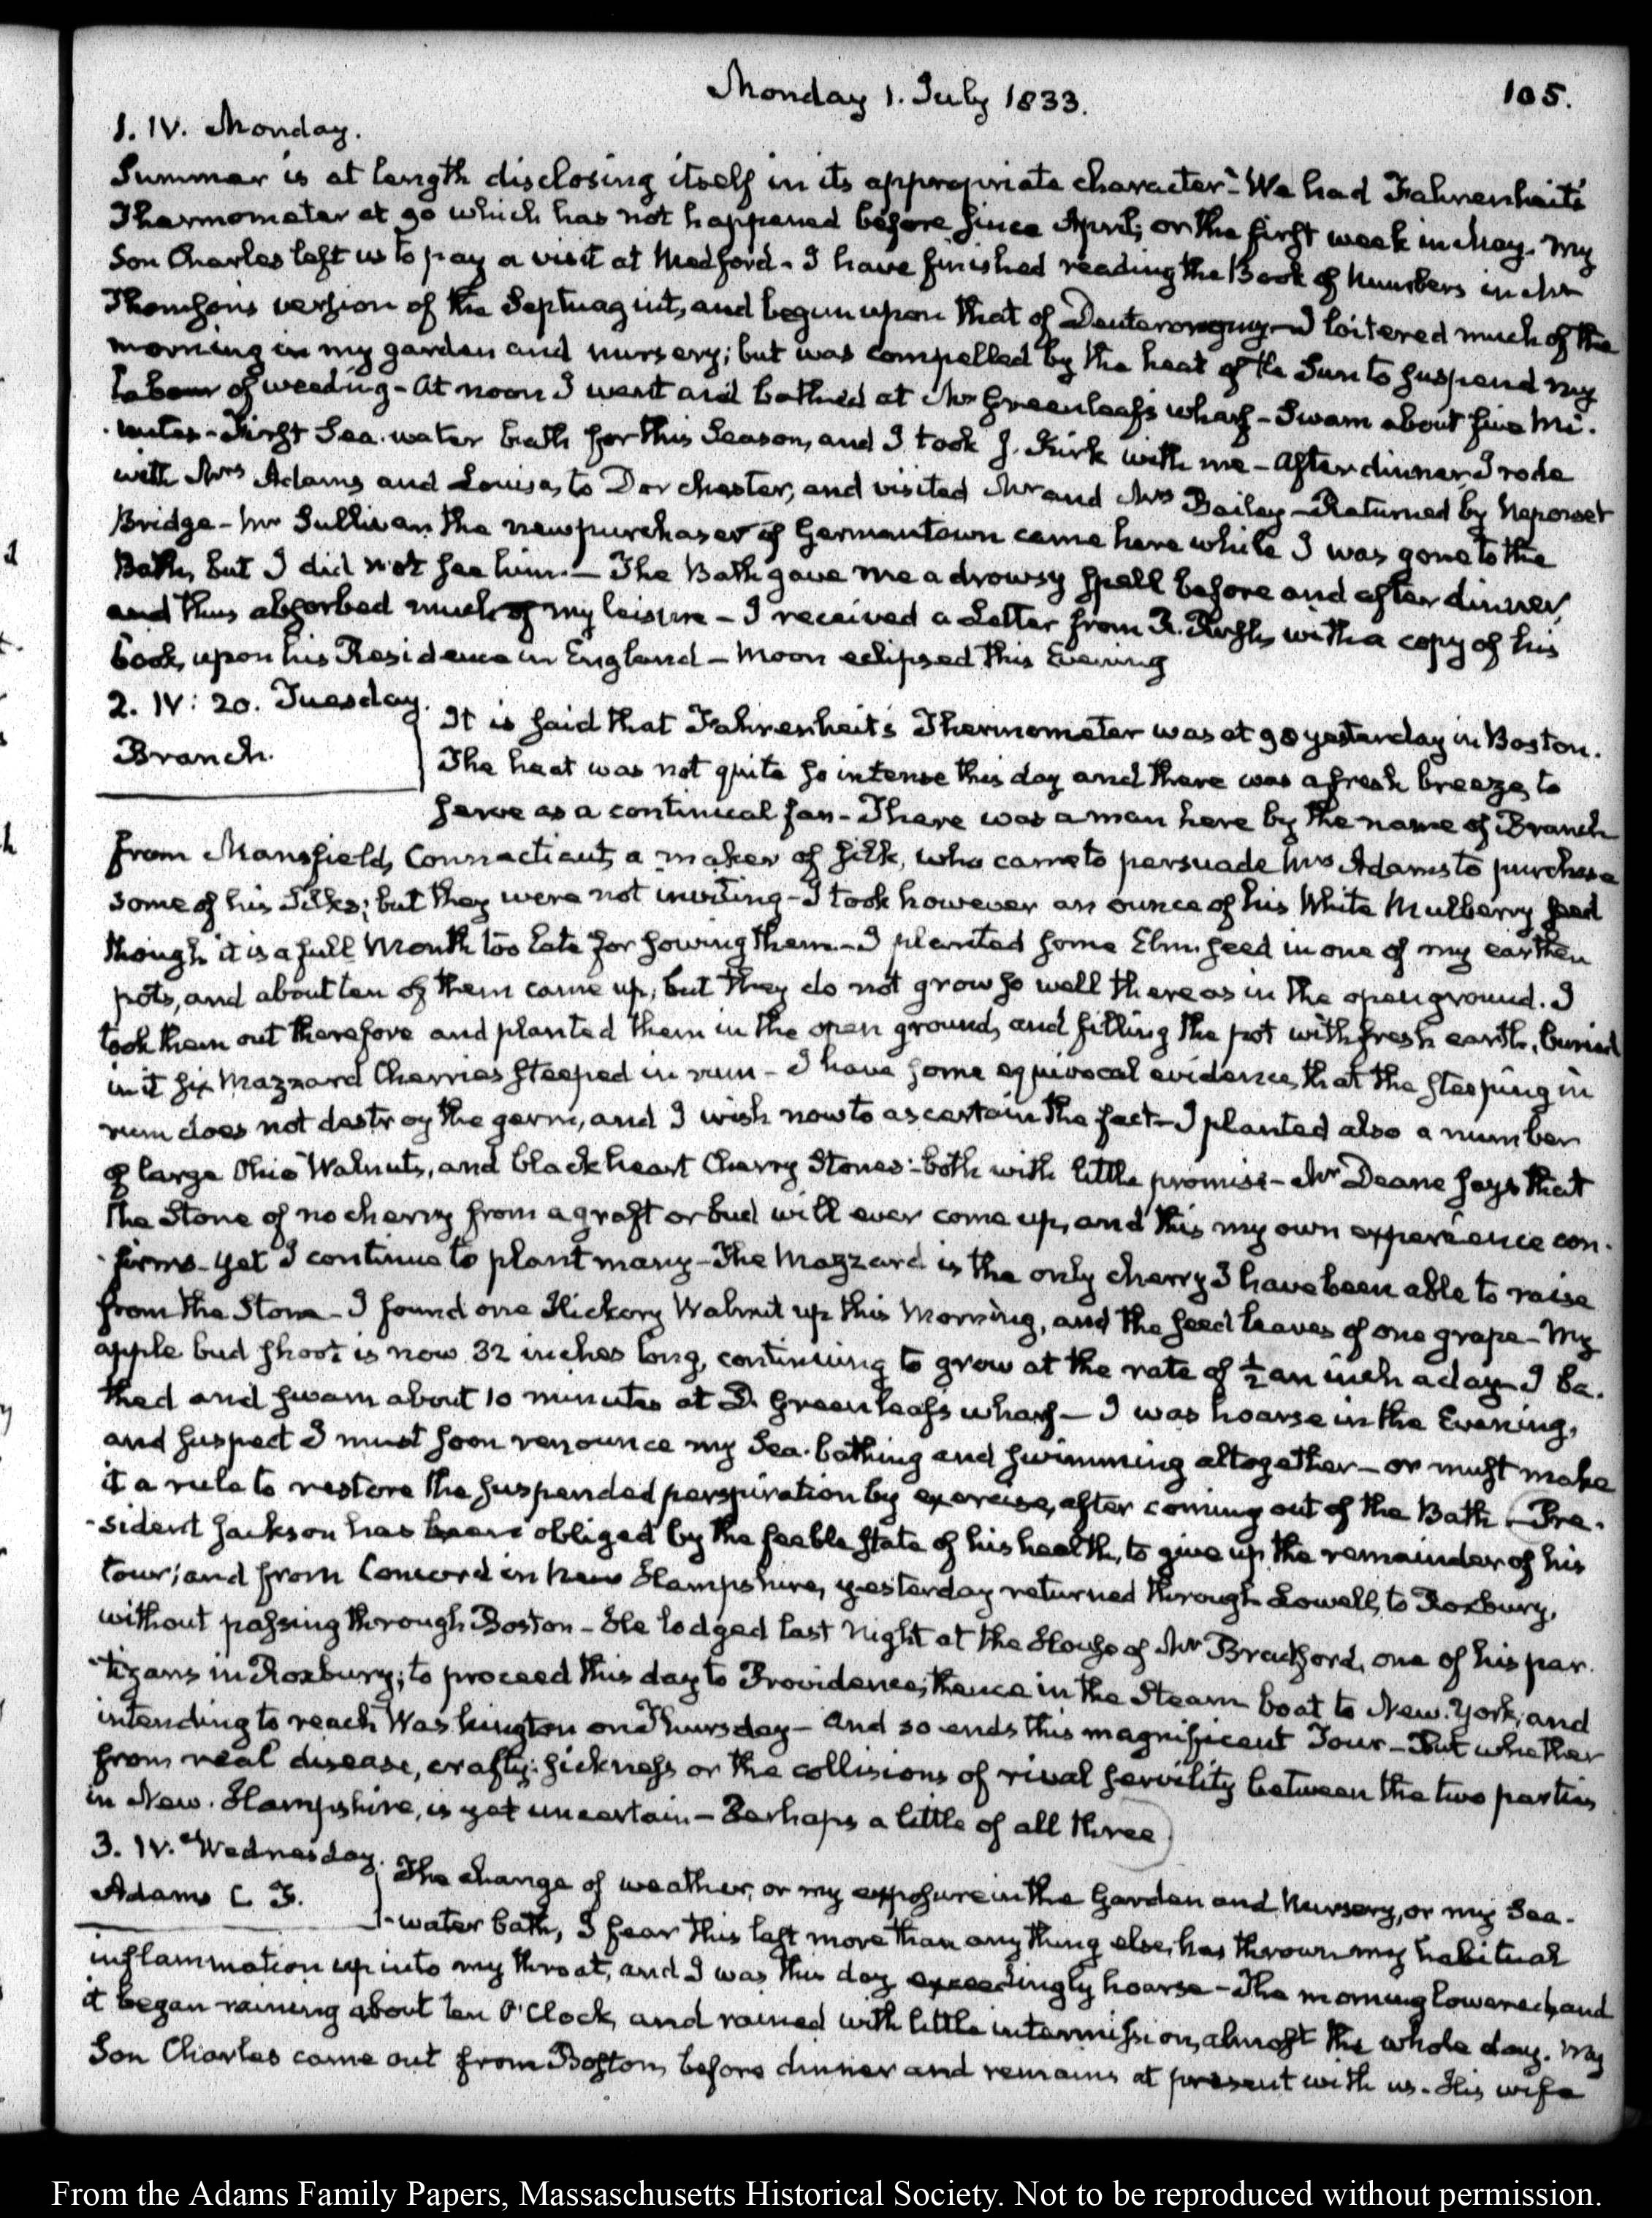 Monday 1. July 1833.
105.
1. IV. Monday.
Summer is at length disclosing itself in its appropriate character – We had Fahrenheit's
Thermometer at 90 which has not happened before since April, or the first week in May. My
Son Charles left us to pay a visit at Medford – I have finished reading the Book of Numbers in Mr
Thomson's version of the Septuagint, and begun upon that of Deuteronomy – I loitered much of the
morning in my garden and nursery; but was compelled by the heat of the Sun to suspend my
labour of weeding – At noon I went and bathed at Mr Greenleaf's wharf – Swam about five mi-
-nutes – First Sea-water bath for this Season, and I took J. Kirk with me – After dinner, I rode
with Mrs Adams and Louisa, to Dorchester, and visited Mr and Mrs Bailey – Returned by Neponset
Bridge – Mr Sullivan the new purchaser of Germantown came here while I was gone to the
Bath, but I did not see him. – The Bath gave me a drowsy spell before and after dinner,
and thus absorbed much of my leisure – I received a Letter from R. Rush, with a copy of his
book, upon his Residence in England – Moon eclipsed this Evening
2. IV: 20. Tuesday.
Branch.
It is said that Fahrenheit's Thermometer was at 98 yesterday in Boston.
The heat was not quite so intense this day and there was a fresh breeze, to
serve as a continual fan – There was a man here by the name of Branch
from Mansfield, Connecticut, a maker of silk, who came to persuade Mrs Adams to purchase
some of his Silks; but they were not inviting – I took however an ounce of his White Mulberry seed
though it is a full Month too late for sowing them. – I planted some Elm seed in one of my earthen
pots, and about ten of them came up; but they do not grow so well there as in the open ground. I
took them out therefore and planted them in the open ground, and filling the pot with fresh earth, buried
in it six Mazzard Cherries steeped in rum – I have some equivocal evidence, that the steeping in
rum does not destroy the germ, and I wish now to ascertain the fact – I planted also a number
of large Ohio Walnuts, and blackheart Cherry Stones – both with little promise – Mr Deane says that
the Stone of no cherry from a graft or bud will ever come up, and this my own experience con-
-firms – yet I continue to plant many – The Mazzard is the only cherry I have been able to raise
from the Stone – I found one Hickory Walnut up this Morning, and the seed leaves of one grape – My
apple bud shoot is now 32 inches long, continuing to grow at the rate of ½ an inch a day – I ba-
thed and swam about 10 minutes at D. Greenleaf's wharf – I was hoarse in the Evening,
and suspect I must soon renounce my Sea-bathing and swimming altogether – or must make
it a rule to restore the suspended perspiration by exercise, after coming out of the Bath. Pre-
-sident Jackson has been obliged by the feeble state of his health, to give up the remainder of his
tour; and from Concord in New Hampshire, yesterday returned through Lowell, to Roxbury,
without passing through Boston – He lodged last Night at the House of Mr Bradford, one of his par-
-tizans in Roxbury; to proceed this day to Providence; thence in the Steam boat to New-York, and
intending to reach Washington on Thursday – And so ends this magnificent Tour – But whether
from real disease, crafty-sickness or the collisions of rival servility between the two parties
in New-Hampshire, is yet uncertain – Perhaps a little of all three
3. IV. Wednesday.
Adams C. F.
The change of weather, or my exposure in the Garden and Nursery, or my Sea-
-water bath, I fear this last more than any thing else, has thrown my habitual
inflammation up into my throat, and I was this day exceedingly hoarse – The morning lowered, and
it began raining about ten O'Clock, and rained with little intermission, almost the whole day. My
Son Charles came out from Boston, before dinner and remains at present with us. His wife
From the Adams Family Papers, Massaschusetts Historical Society. Not to be reproduced without permission.